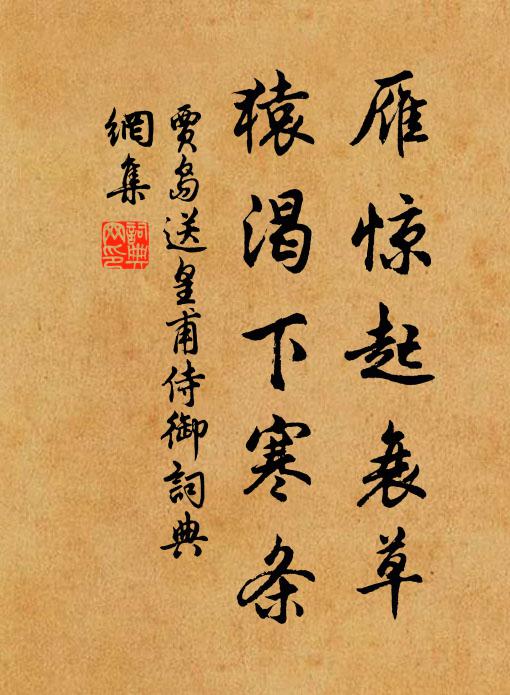 雁惊起衰草
猿渴下寒条
贾岛送皇甫侍御詞典
網集
詞典
网印